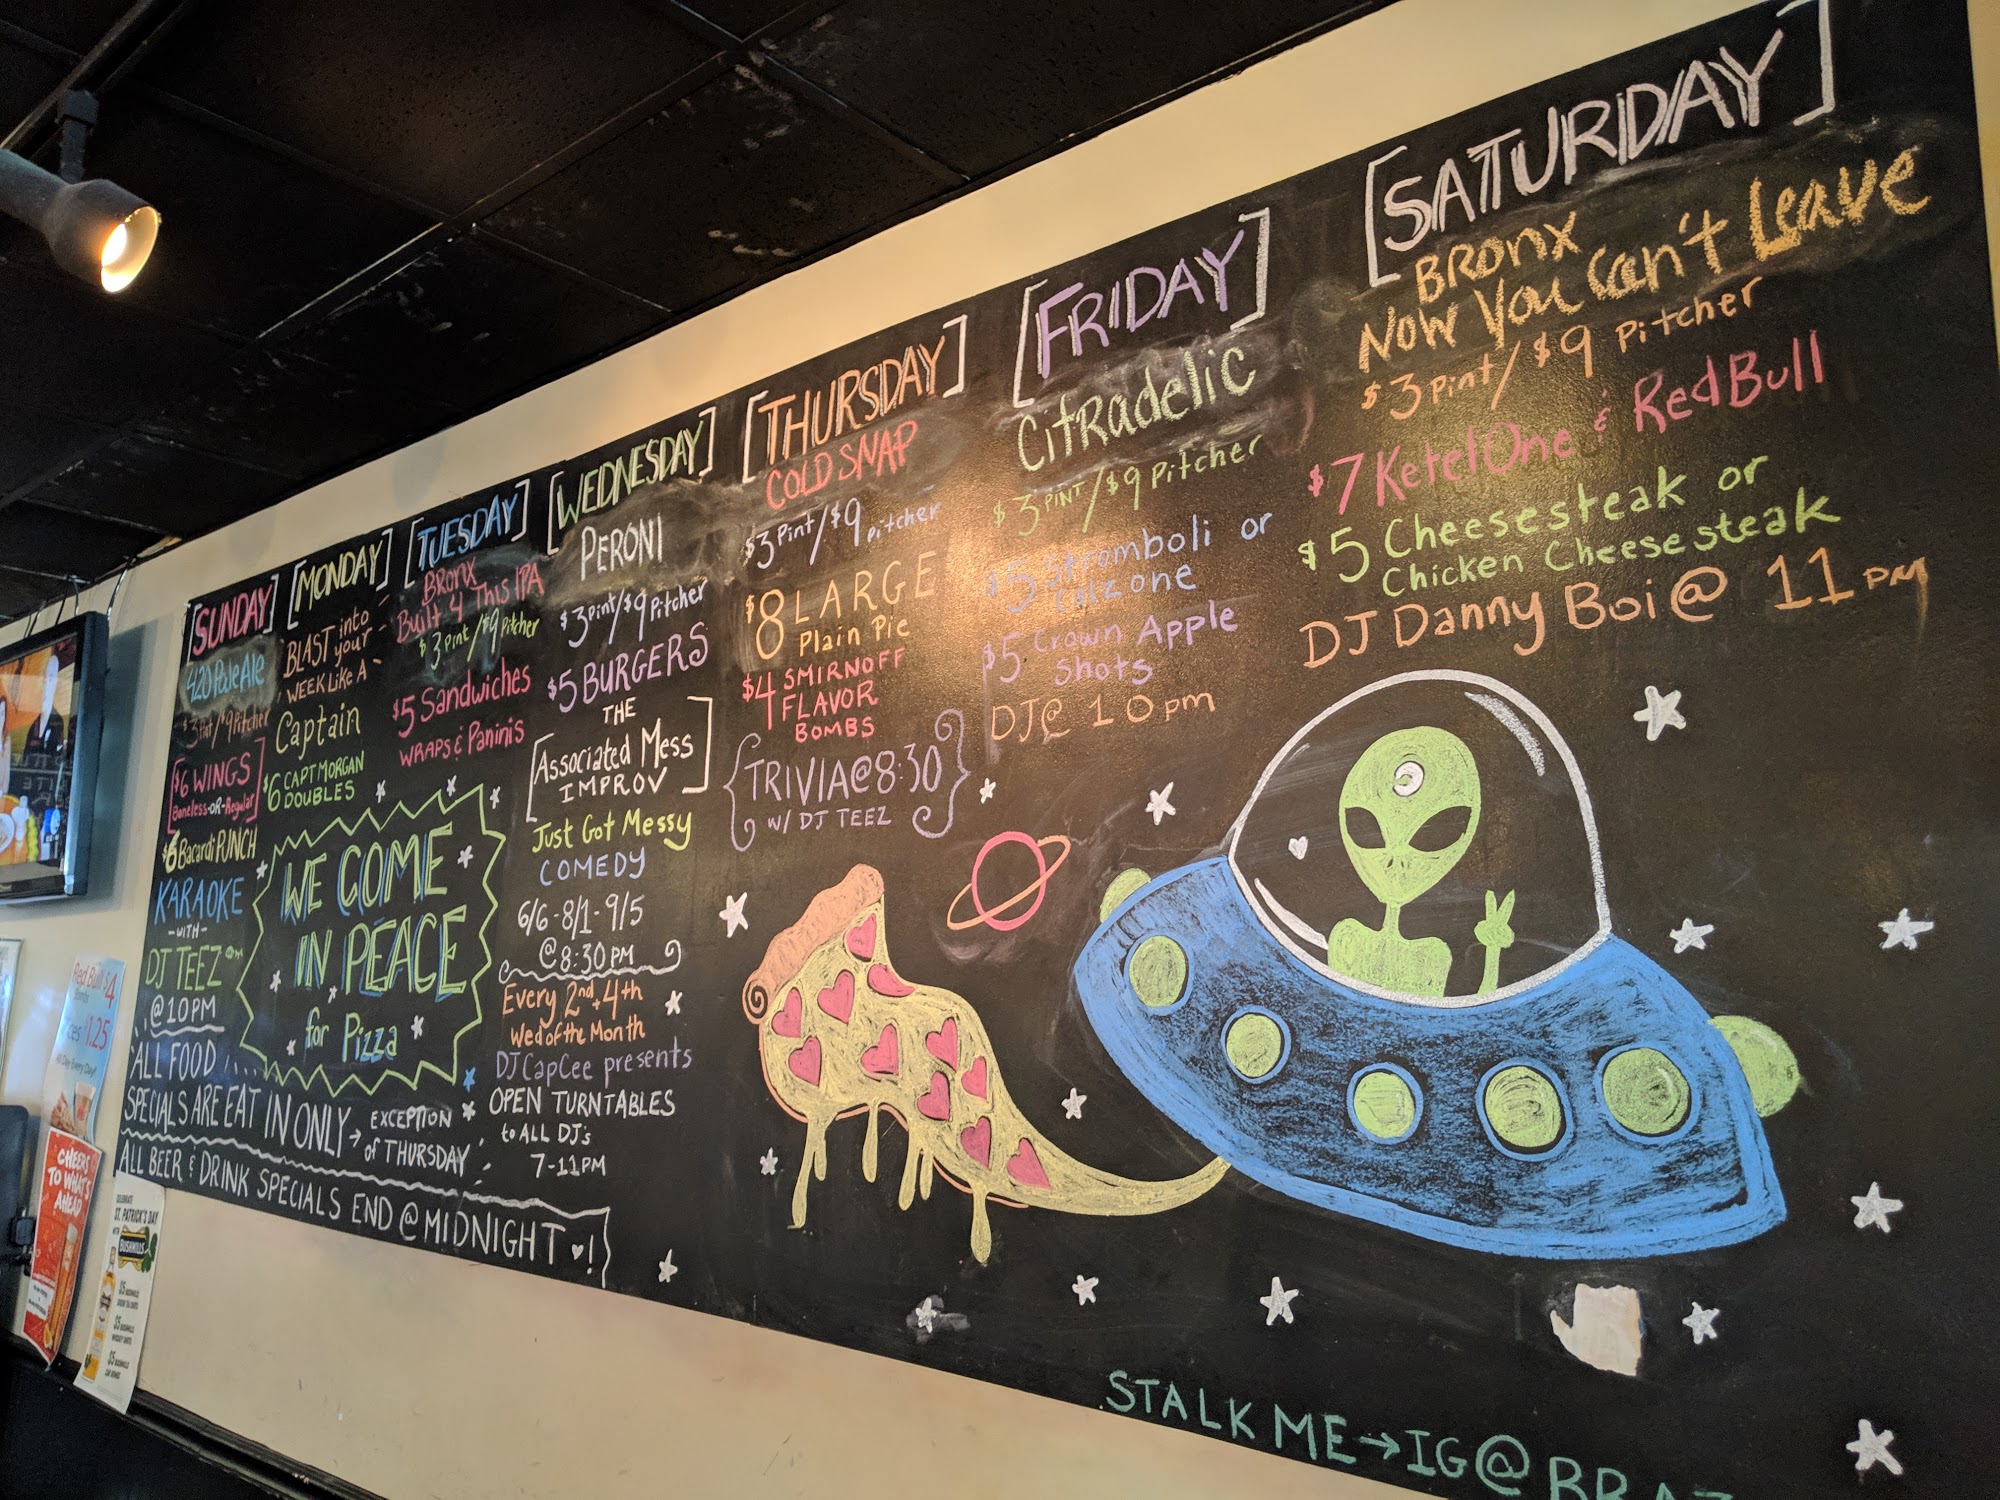 [SUNDAY]
420 Pale Ale
$3 Pint/$9 Pitcher
[$6 WINGS
Boneless-OR-Regular]
$6 Bacardi PUNCH
KARAOKE
-WITH-
DJ TEEZ
@10PM
[MONDAY]
BLAST into
your
WEEK Like A
Captain
$6 CAPT MORGAN
DOUBLES
[TUESDAY]
Bronx
Built 4 This IPA
$3 Pint/$9 Pitcher
$5 Sandwiches
WRAPS & Paninis
WE COME
IN PEACE
for Pizza
[WEDNESDAY]
PERONI
$3 Pint/$9 Pitcher
$5 BURGERS
THE
[Associated Mess
IMPROV]
Just Got Messy
COMEDY
6/6-8/1-9/5
@8:30PM
Every 2nd + 4th
Wed of the Month
DJ CapCee presents
OPEN TURNTABLES
to ALL DJ's
7-11PM
[THURSDAY]
COLD SNAP
$3 Pint/$9 Pitcher
$8 LARGE
Plain Pie
$4 SMIRNOFF
FLAVOR
BOMBS
{TRIVIA@8:30
W/ DJ TEEZ}
[FRIDAY]
Citradelic
$3 PINT/$9 Pitcher
$5 Stromboli or
Calzone
$5 Crown Apple
Shots
DJ@ 10pm
[SATURDAY]
BRonx
Now You Can't Leave
$3 Pint/$9 Pitcher
$7 Ketel One & Red Bull
$5 Cheesesteak or
Chicken Cheesesteak
DJ Danny Boi @ 11PM
ALL FOOD
SPECIALS ARE EAT IN ONLY → EXCEPTION
of THURSDAY
ALL BEER & DRINK SPECIALS END @ MIDNIGHT ♥!
STALK ME→IG@BRAZ
Red Bull $4
$1.25
All Day Every Day!
CHEERS
TO WHAT'S
AHEAD
CELEBRATE
ST. PATRICK'S DAY
WITH
BUSHMILLS